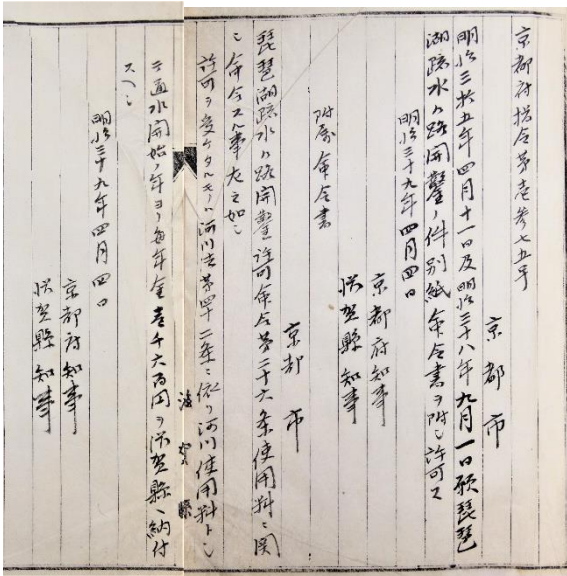 京都府指令第壱参七五号
京都市
明治三拾五年四月十一日及明治三十八年九月一日願琵琶
湖疏水々路開鑿ノ件別紙命令書ヲ附シ許可ス
明治三十九年四月四日
京都府知事
滋賀縣知事
附属命令書
京都市
琵琶湖疏水々路開鑿許可命令第二十六条使用料ニ関
シ命令スル事左之如シ
許可ヲ受ケタルモノハ河川法第四十二条ニ依リ河川使用料トシ
滋賀縣
テ通水開始ノ年ヨリ毎年金壱千六百円ヲ滋賀縣ヘ納付
スヘシ
明治三十九年四月四日
京都府知事
滋賀縣知事